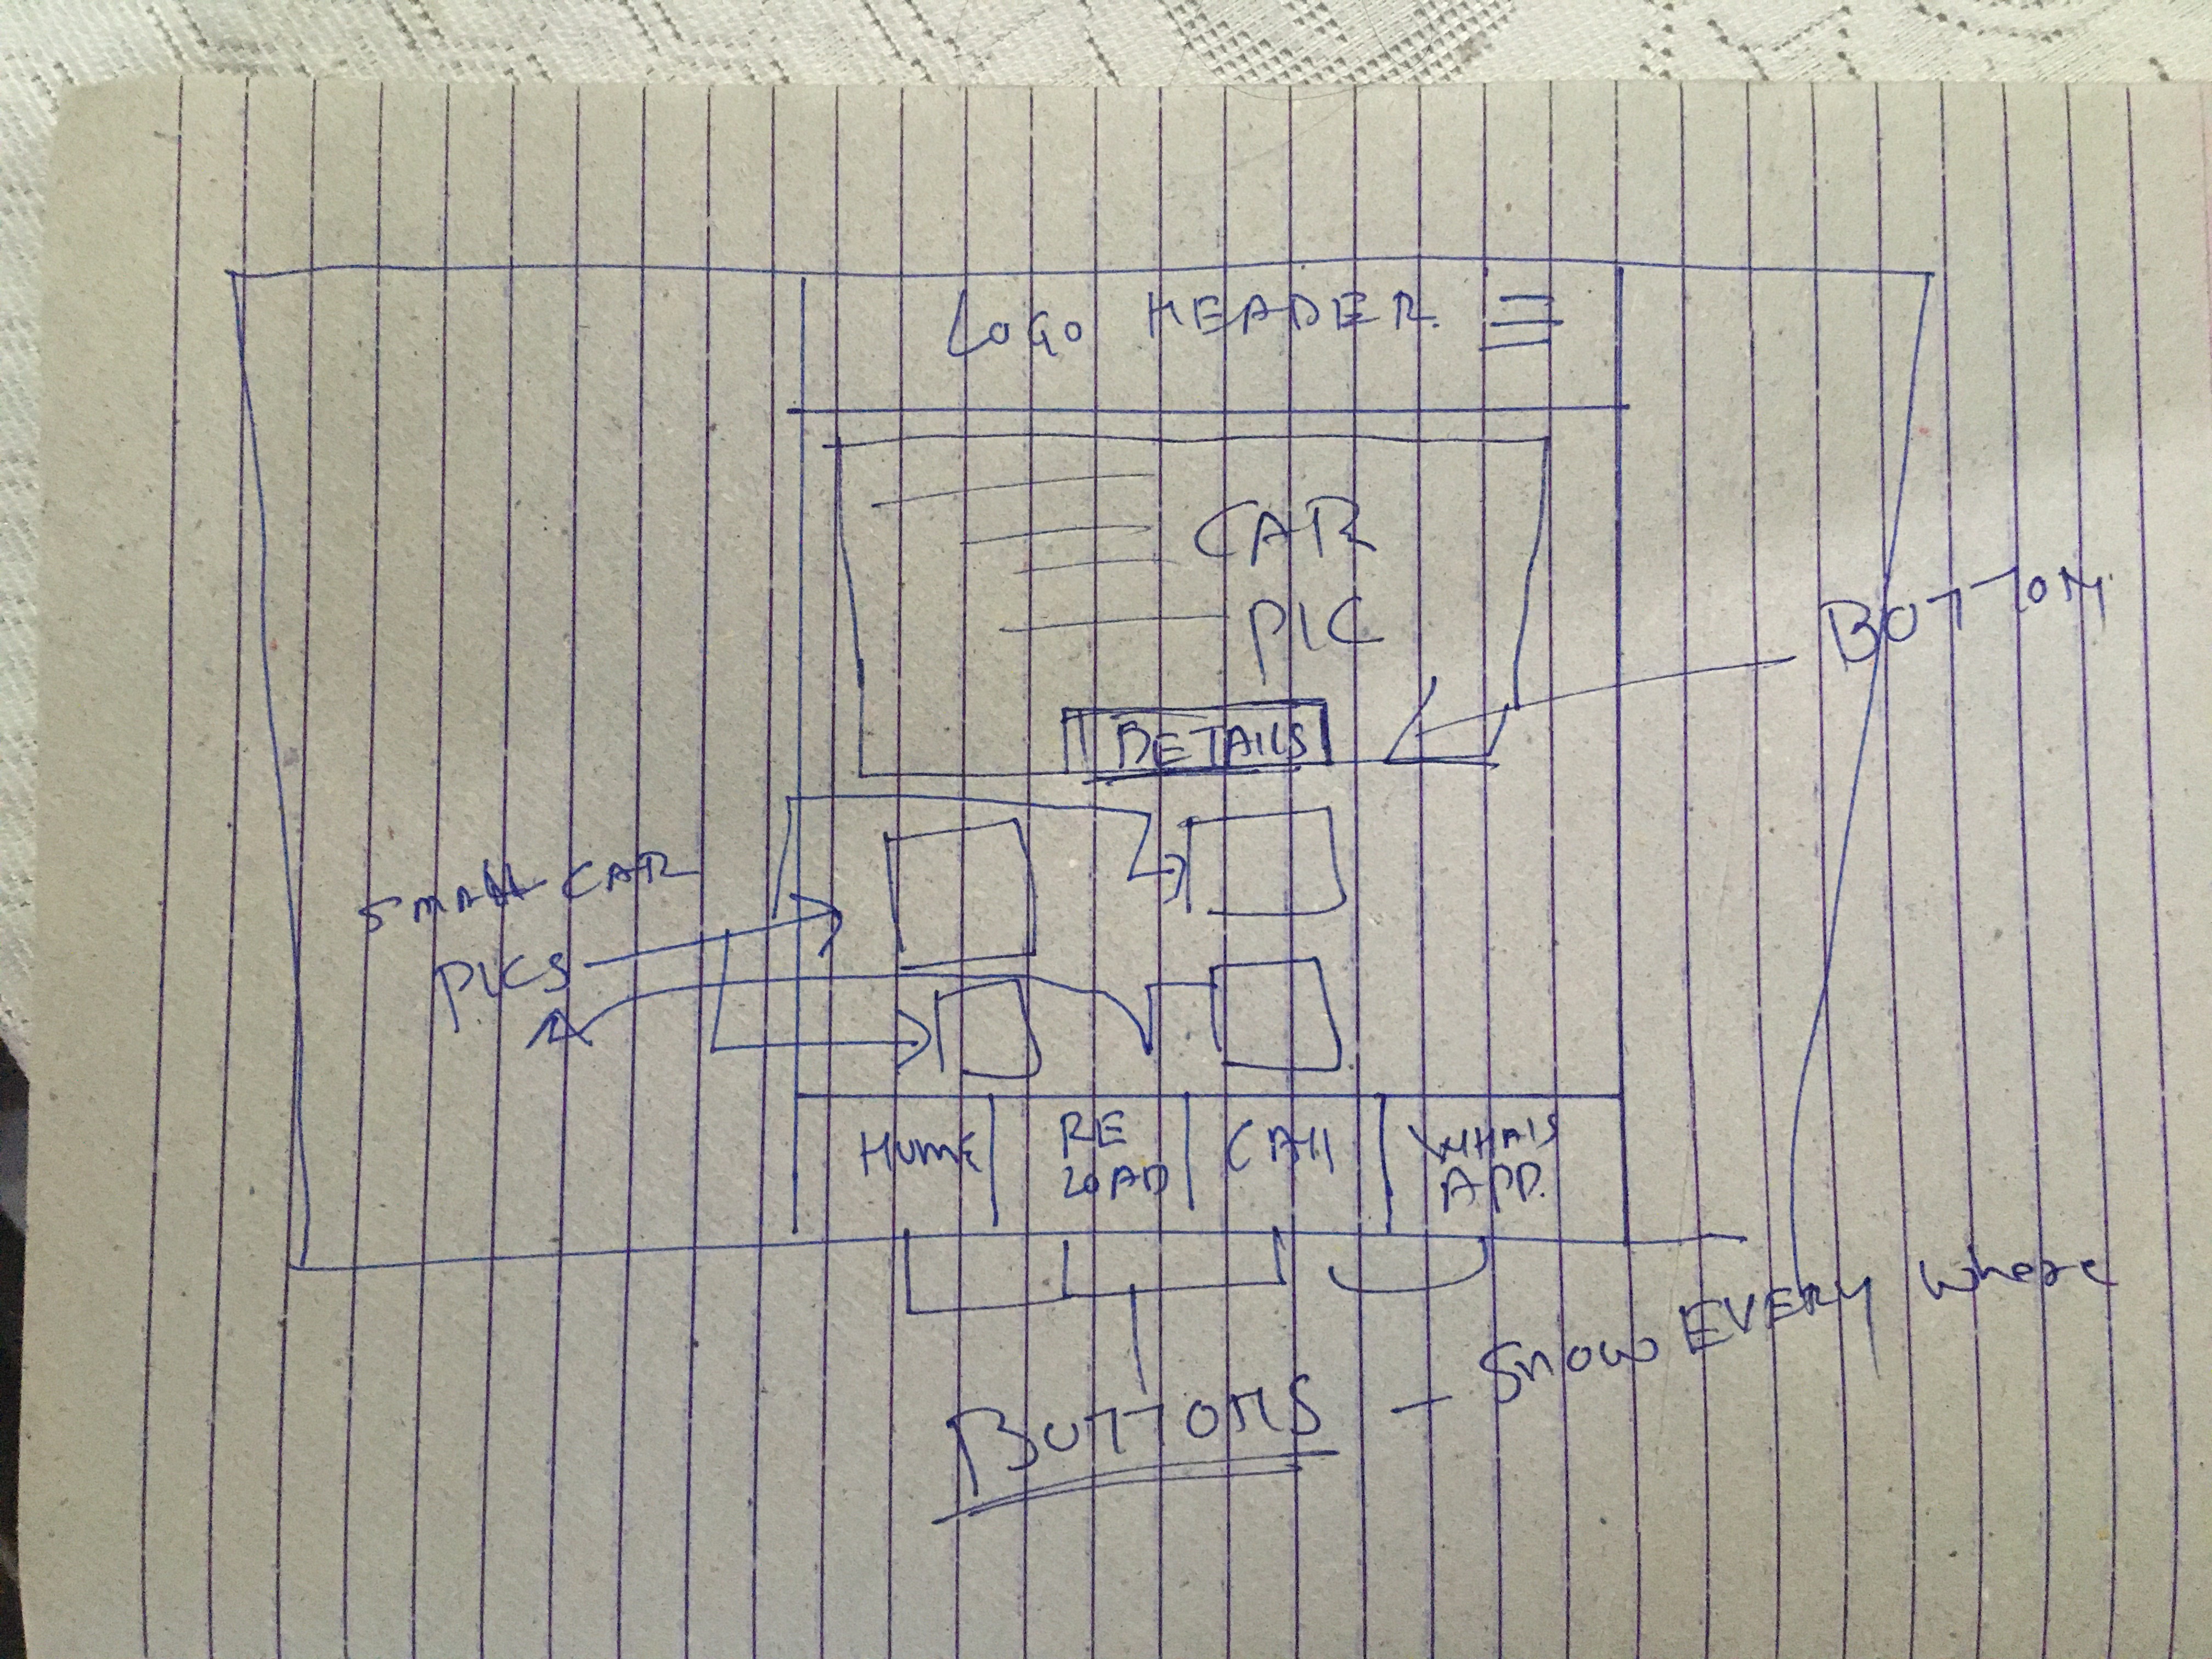 LOGO HEADER
CAR
PIC
BUTTON
DETAILS
SMALL CAR
PICS
HOME
RE
LOAD
CALL
WHATS
APP.
BUTTONS - SHOW EVERY where